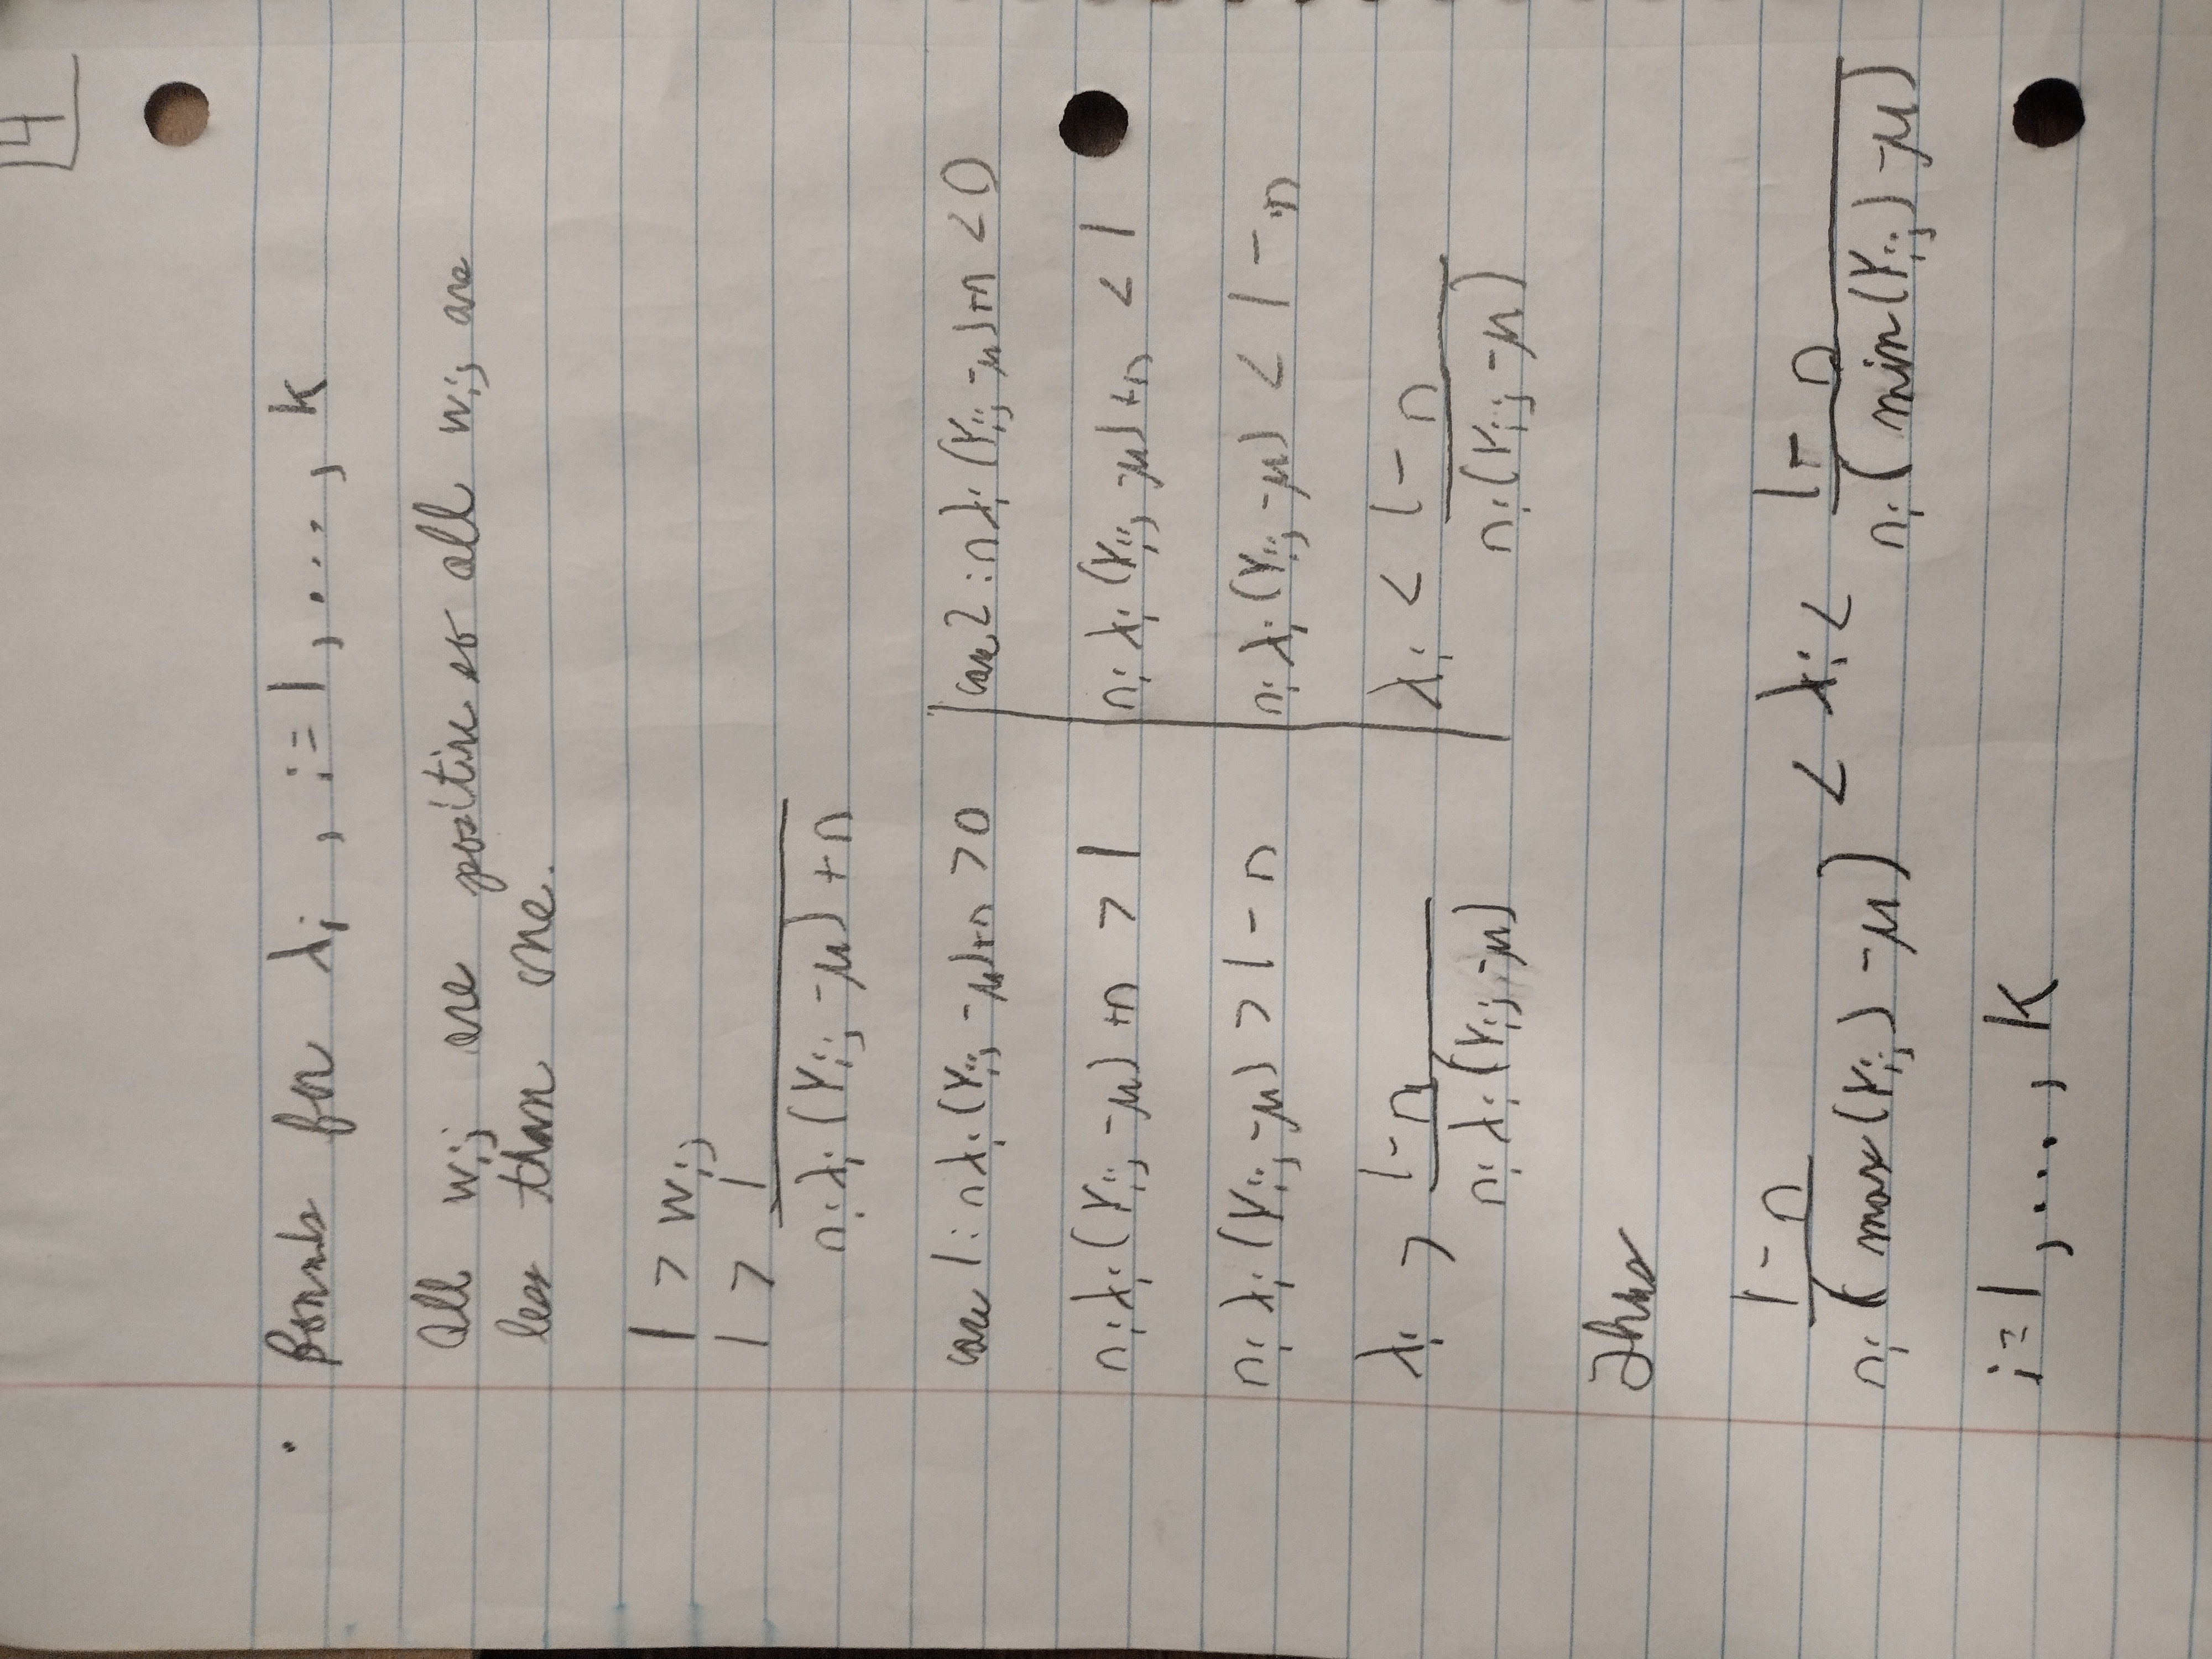 4
· Bounds for λᵢ , i=1, ..., k
All wᵢⱼ are positive so all wᵢⱼ are
less than one.
1 > wᵢⱼ
1 > 1/(nᵢλᵢ(Yᵢⱼ-μ)+n)
case 1: nλᵢ(Yᵢⱼ-μ)+n >0 | case 2: nλᵢ(Yᵢⱼ-μ)+n <0
nᵢλᵢ(Yᵢⱼ-μ)+n > 1 | nᵢλᵢ(Yᵢⱼ-μ)+n < 1
nᵢλᵢ(Yᵢⱼ-μ) > 1-n | nᵢλᵢ(Yᵢⱼ-μ) < 1-n
λᵢ > (1-n)/(nᵢλᵢ(Yᵢⱼ-μ)) | λᵢ < (1-n)/(nᵢ(Yᵢⱼ-μ))
Thus
(1-n)/(nᵢ(max(Yᵢⱼ)-μ)) < λᵢ < (1-n)/(nᵢ(min(Yᵢⱼ)-μ))
i=1, ..., k